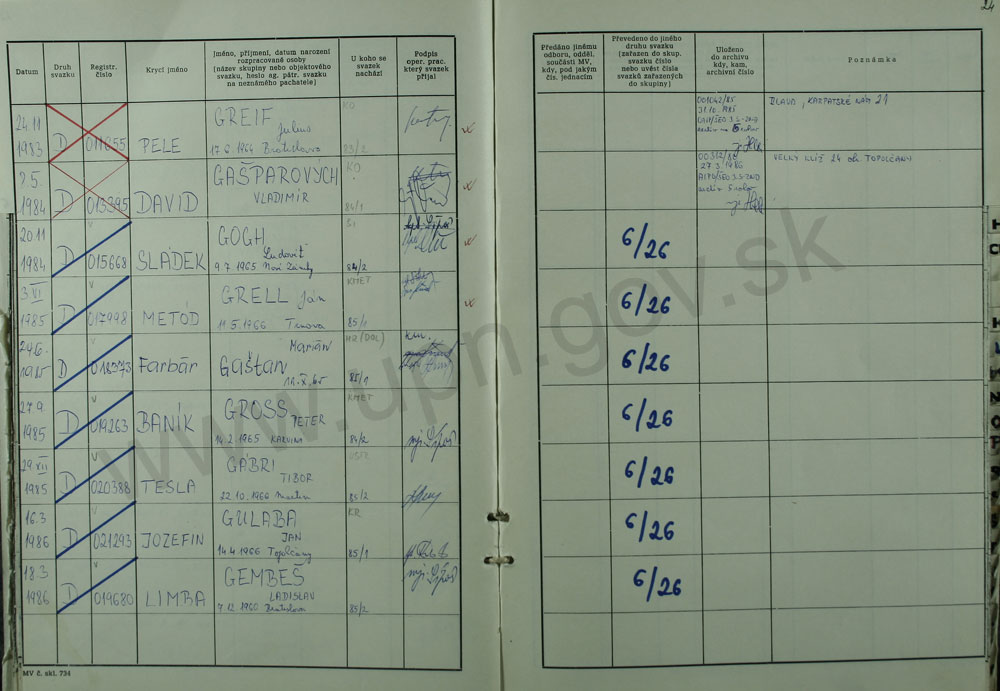 24
Datum
Druh
svazku
Registr.
číslo
Krycí jméno
Jméno, příjmení, datum narození
rozpracované osoby
(název skupiny nebo objektového
svazku, heslo ag. pátr. svazku
na neznámého pachatele)
U koho se
svazek
nachází
Podpis
oper. prac.
který svazek
přijal
Předáno jinému
odboru, odděl.
součásti MV,
kdy, pod jakým
čís. jednacím
Převedeno do jiného
druhu svazku
(zařazen do skup.
svazku číslo
nebo uvést čísla
svazků zařazených
do skupiny)
Uloženo
do archivu
kdy, kam,
archivní číslo
Poznámka
24.11
1983
D
011855
PELE
GREIF
Július
17.6.1964 Bratislava
KO
83/2
001042/85
31.10.1985
BLAVA, KARPATSKÉ NÁM 21
1984
D
013395
DAVID
GAŠPAROVÝCH
VLADIMÍR
KO
84/1
00312/86
27.3.1986
VEĽKÝ KLÍŽ 24 ok. TOPOĽČANY
20.11
1984
D
015668
SLÁDEK
GOGH
Ľudovít
9.7.1965 Nové Zámky
84/2
6/26
3.VI
1985
D
017998
METÓD
GRELL Ján
11.5.1966 Trnava
KMET
85/1
6/26
24.6.
1985
D
018373
Farbár
Marián
Gaštan
85/1
6/26
27.9
1985
D
019263
BANÍK
GROSS
PETER
14.2.1965 KARVINÁ
KMET
84/2
6/26
29.VII
1985
D
020388
TESLA
GÁBRI
TIBOR
22.10.1966 Martin
85/2
6/26
16.3
1986
D
021293
JOZEFIN
GULABA
JÁN
14.4.1966 Topoľčany
KR
85/1
6/26
18.3
1986
D
019680
LIMBA
GEMBEŠ
LADISLAV
7.12.1960 Bratislava
85/2
6/26
MV č. skl. 734
www.upn.gov.sk